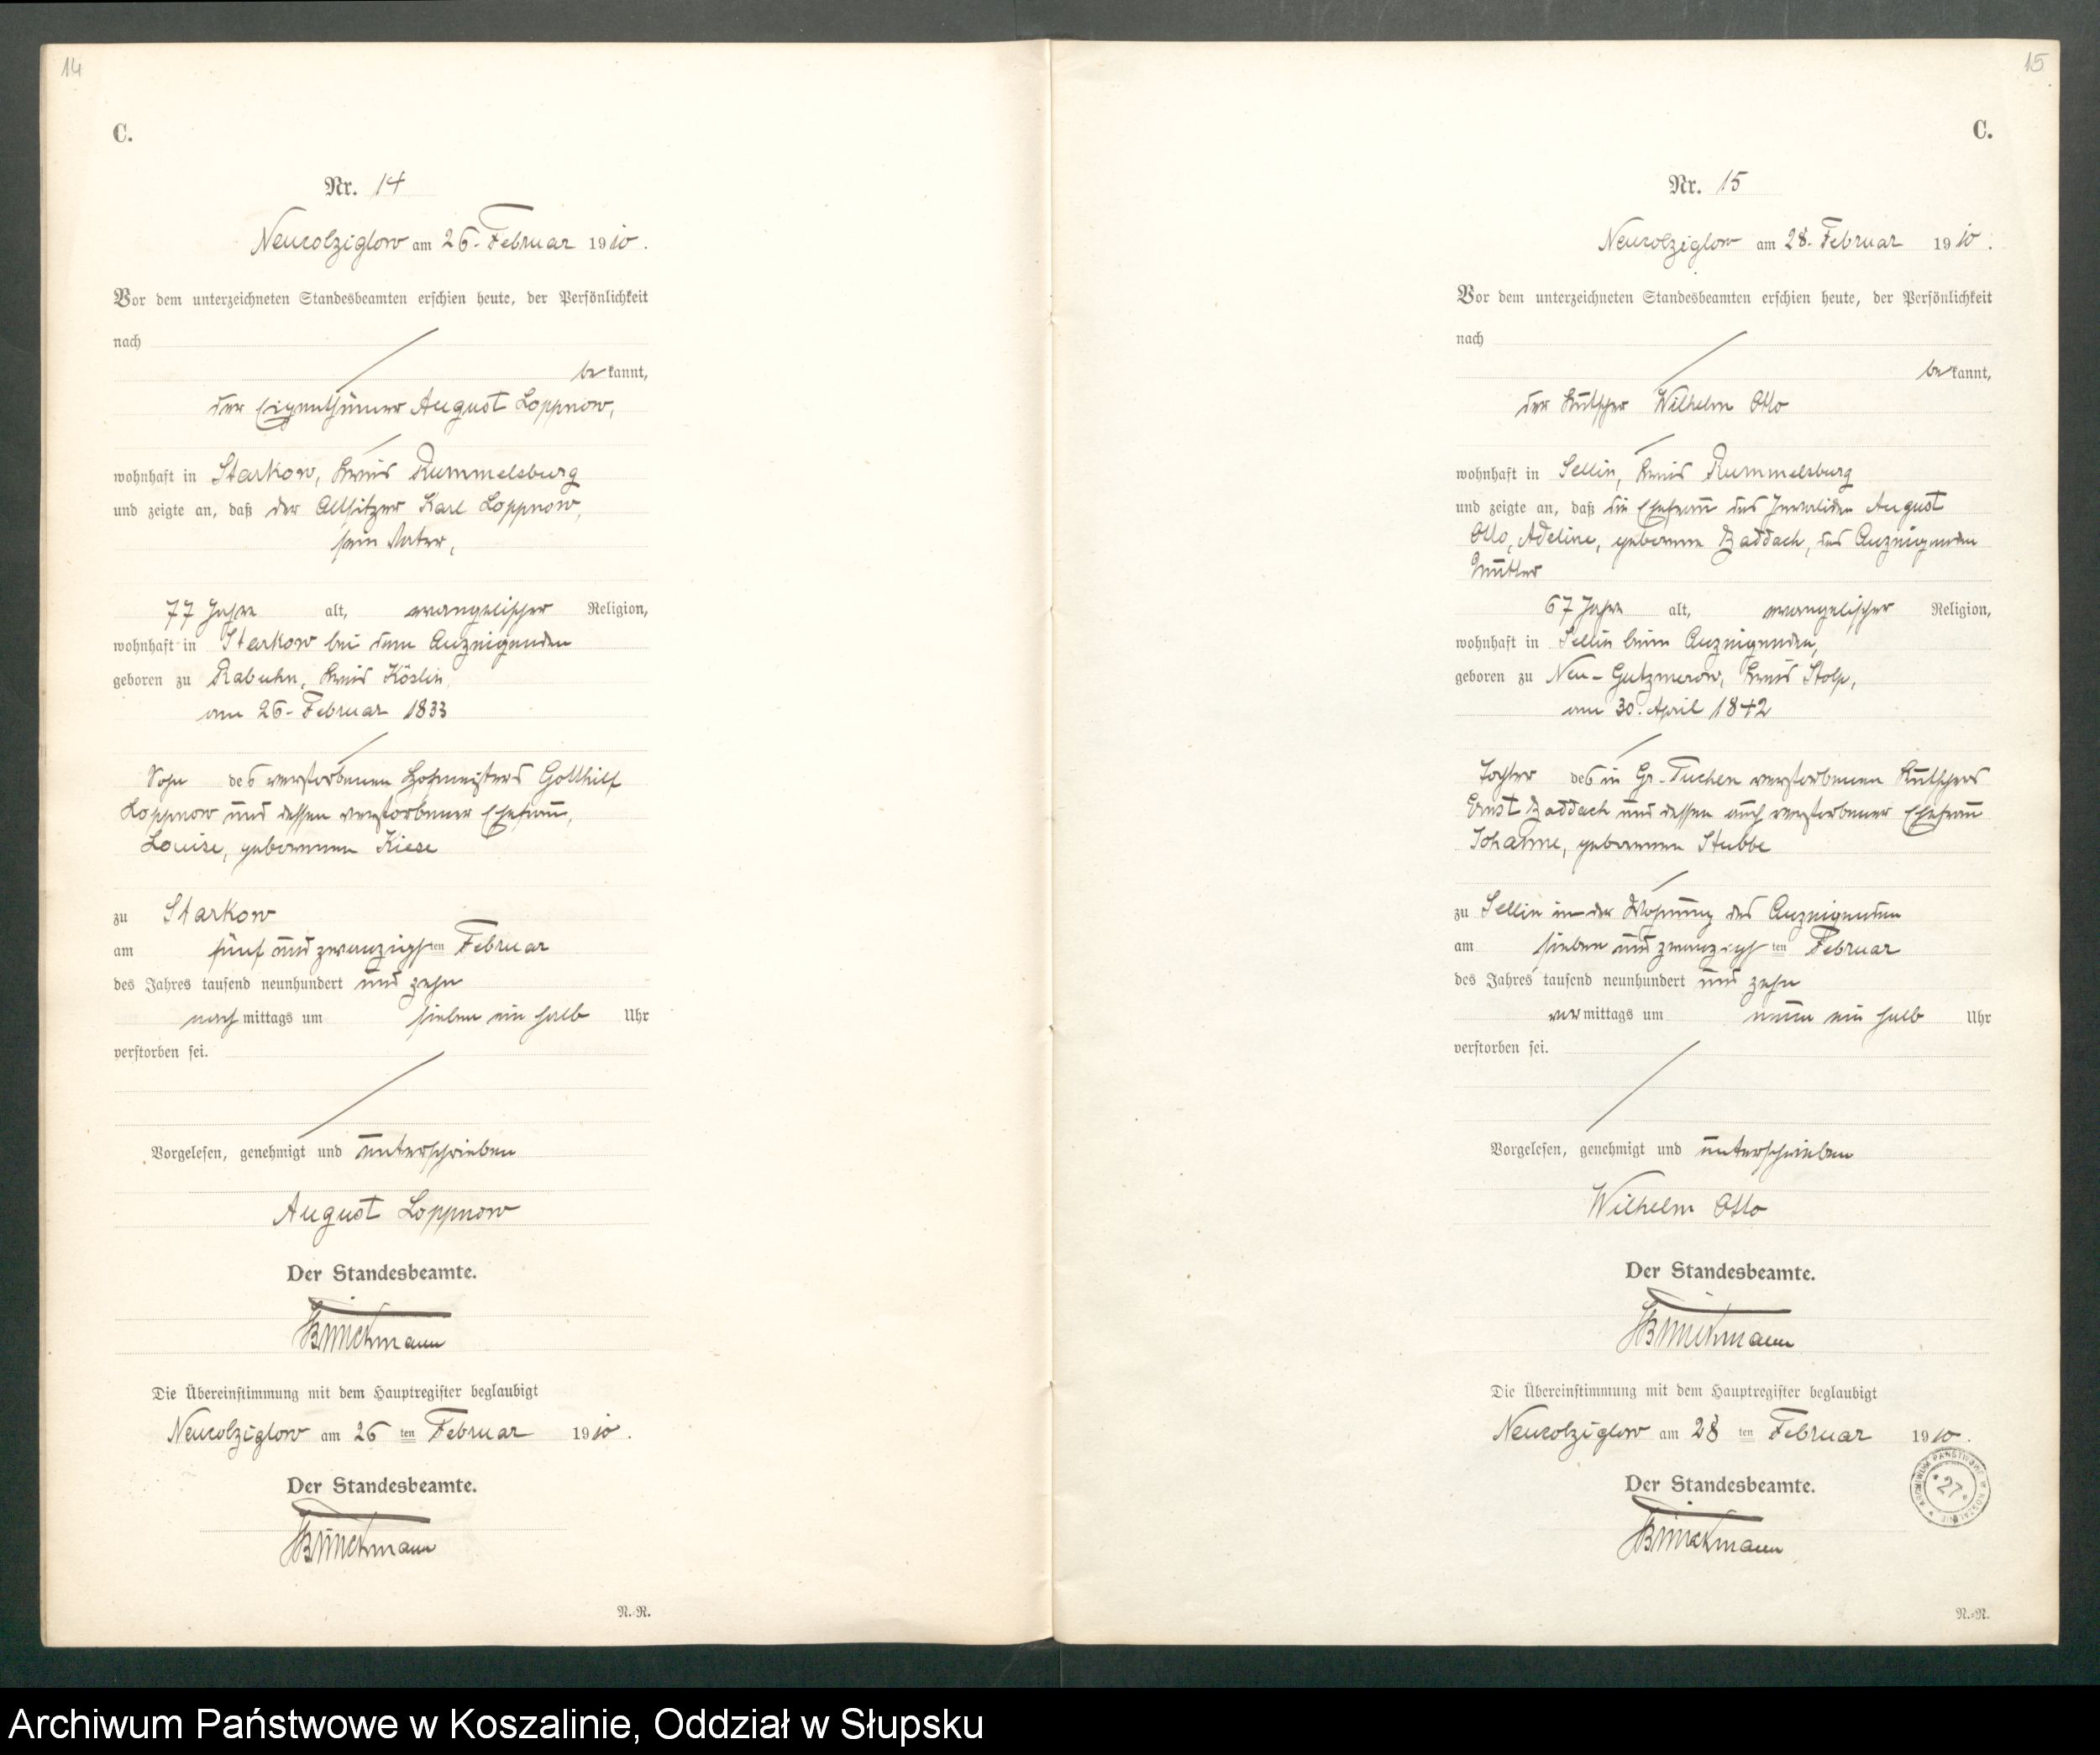 14
C.
Nr. 14
Neucolziglow am 26. Februar 1910.
Vor dem unterzeichneten Standesbeamten erschien heute, der Persönlichkeit
nach
bekannt,
der Eigenthümer August Loppnow,
wohnhaft in Starkow, Kreis Rummelsburg
und zeigte an, daß der Altsitzer Karl Loppnow,
sein Vater,
77 Jahre alt, evangelischer Religion,
wohnhaft in Starkow bei dem Anzeigenden
geboren zu Rabuhn, Kreis Köslin,
am 26. Februar 1833
Sohn des verstorbenen Hofmeisters Gotthilf
Loppnow und dessen verstorbener Ehefrau,
Louise, geborenen Kiese
zu Starkow
am fünf und zwanzigsten Februar
des Jahres tausend neunhundert und zehn
nachmittags um sieben ein halb Uhr
verstorben sei.
Vorgelesen, genehmigt und unterschrieben
August Loppnow
Der Standesbeamte.
Brinckmann
Die Übereinstimmung mit dem Hauptregister beglaubigt
Neucolziglow am 26 ten Februar 1910.
Der Standesbeamte.
Brinckmann
N.-N.
15
C.
Nr. 15
Neucolziglow am 28. Februar 1910.
Vor dem unterzeichneten Standesbeamten erschien heute, der Persönlichkeit
nach
bekannt,
der Kutscher Wilhelm Otto
wohnhaft in Sellin, Kreis Rummelsburg
und zeigte an, daß die Ehefrau des Invaliden August
Otto, Adeline, geborene Baddach, des Anzeigenden
Mutter
67 Jahre alt, evangelischer Religion,
wohnhaft in Sellin beim Anzeigenden,
geboren zu Neu-Gutzmerow, Kreis Stolp,
am 30. April 1842
Tochter des in Gr. Tuchen verstorbenen Kutschers
Ernst Baddach und dessen auch verstorbener Ehefrau
Johanne, geborenen Stubbe
zu Sellin in der Wohnung des Anzeigenden
am sieben und zwanzigsten Februar
des Jahres tausend neunhundert und zehn
vormittags um neun ein halb Uhr
verstorben sei.
Vorgelesen, genehmigt und unterschrieben
Wilhelm Otto
Der Standesbeamte.
Brinckmann
Die Übereinstimmung mit dem Hauptregister beglaubigt
Neucolziglow am 28 ten Februar 1910.
Der Standesbeamte.
Brinckmann
ARCHIWUM PAŃSTWOWE W KOSZALINIE
27
N.-N.
Archiwum Państwowe w Koszalinie, Oddział w Słupsku